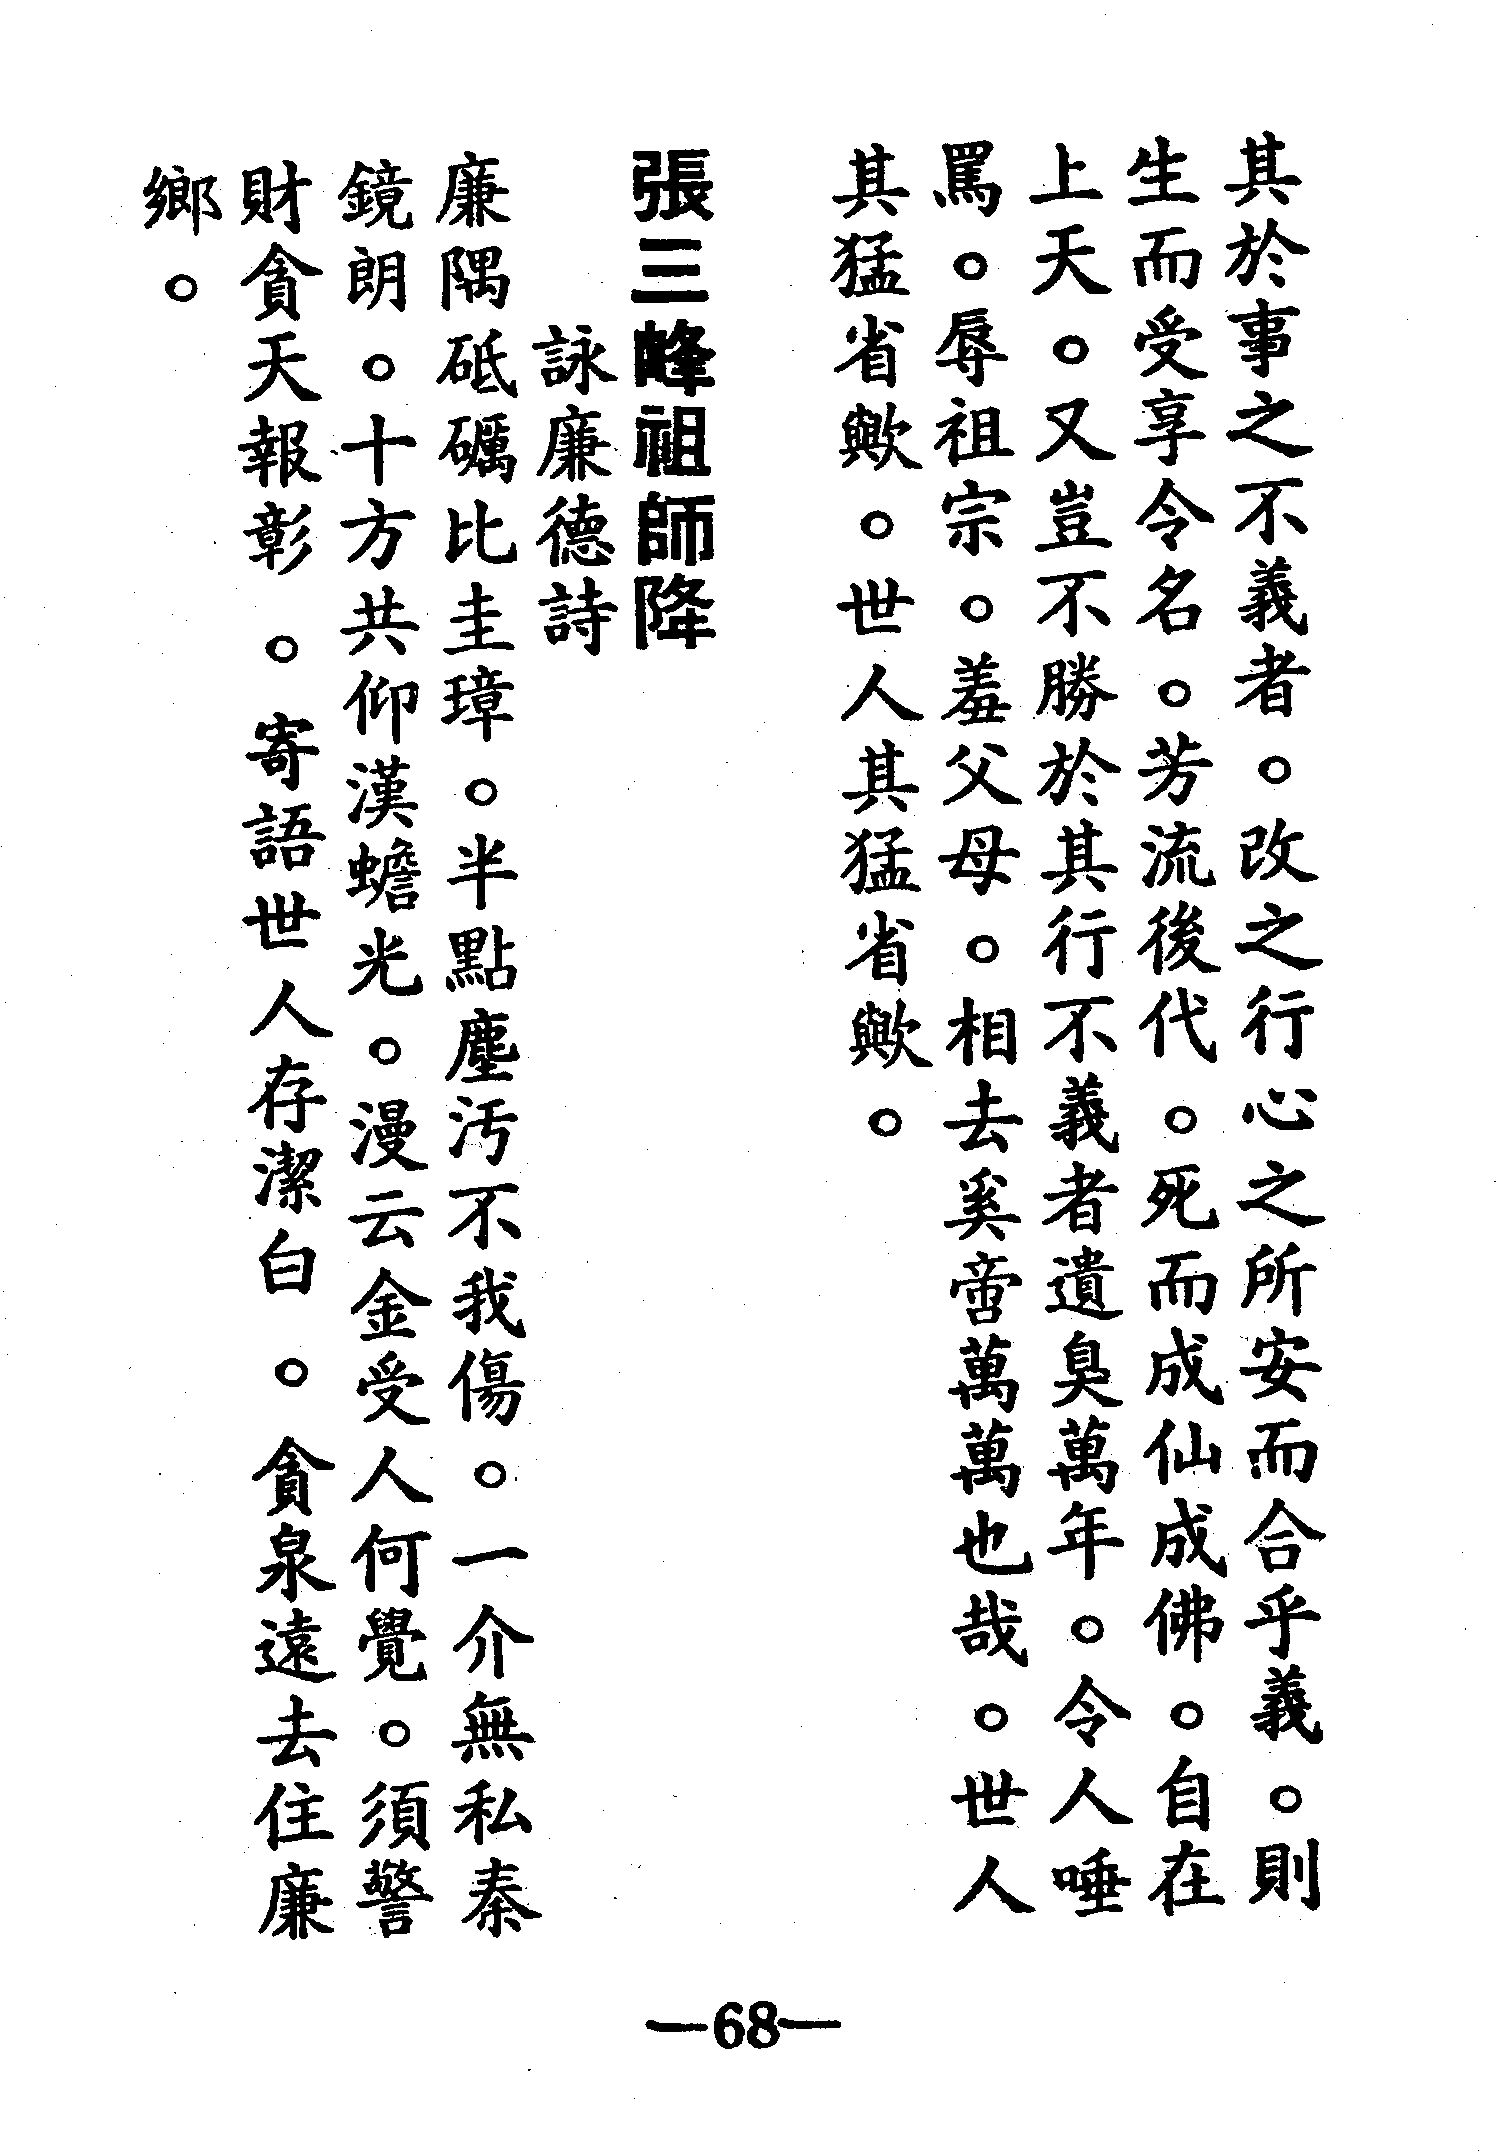 其於事之不義者。改之行心之所安而合乎義。則
生而受享令名。芳流後代。死而成仙成佛。自在
上天。又豈不勝於其行不義者遺臭萬年。令人唾
罵。辱祖宗。羞父母。相去奚啻萬萬也哉。世人
其猛省歟。世人其猛省歟。
張三峰祖師降
詠廉德詩
廉隅砥礪比圭璋。半點塵污不我傷。一介無私秦
鏡朗。十方共仰漢蟾光。漫云金受人何覺。須警
財貪天報彰。寄語世人存潔白。貪泉遠去住廉
鄉。
—68—